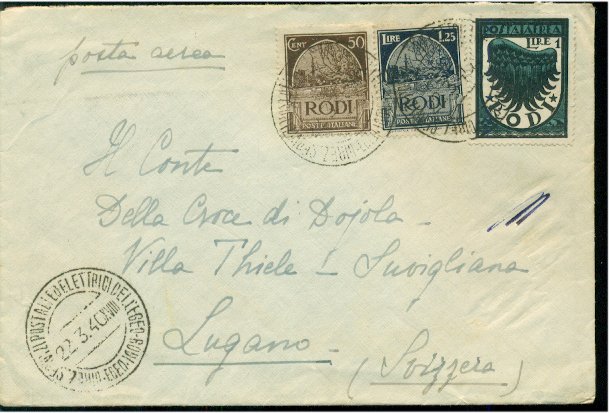 posta aerea
CENT 50
RODI
POSTE ITALIANE
LIRE 1.25
RODI
POSTE ITALIANE
POSTA AEREA
LIRE 1
RODI
Il Conte
Della Croce di Dojola
Villa Thiele - Suvigliana
Lugano
(Svizzera)
22.3.40.XVIII
POSTALI ED ELETTRICI DELL'EGEO